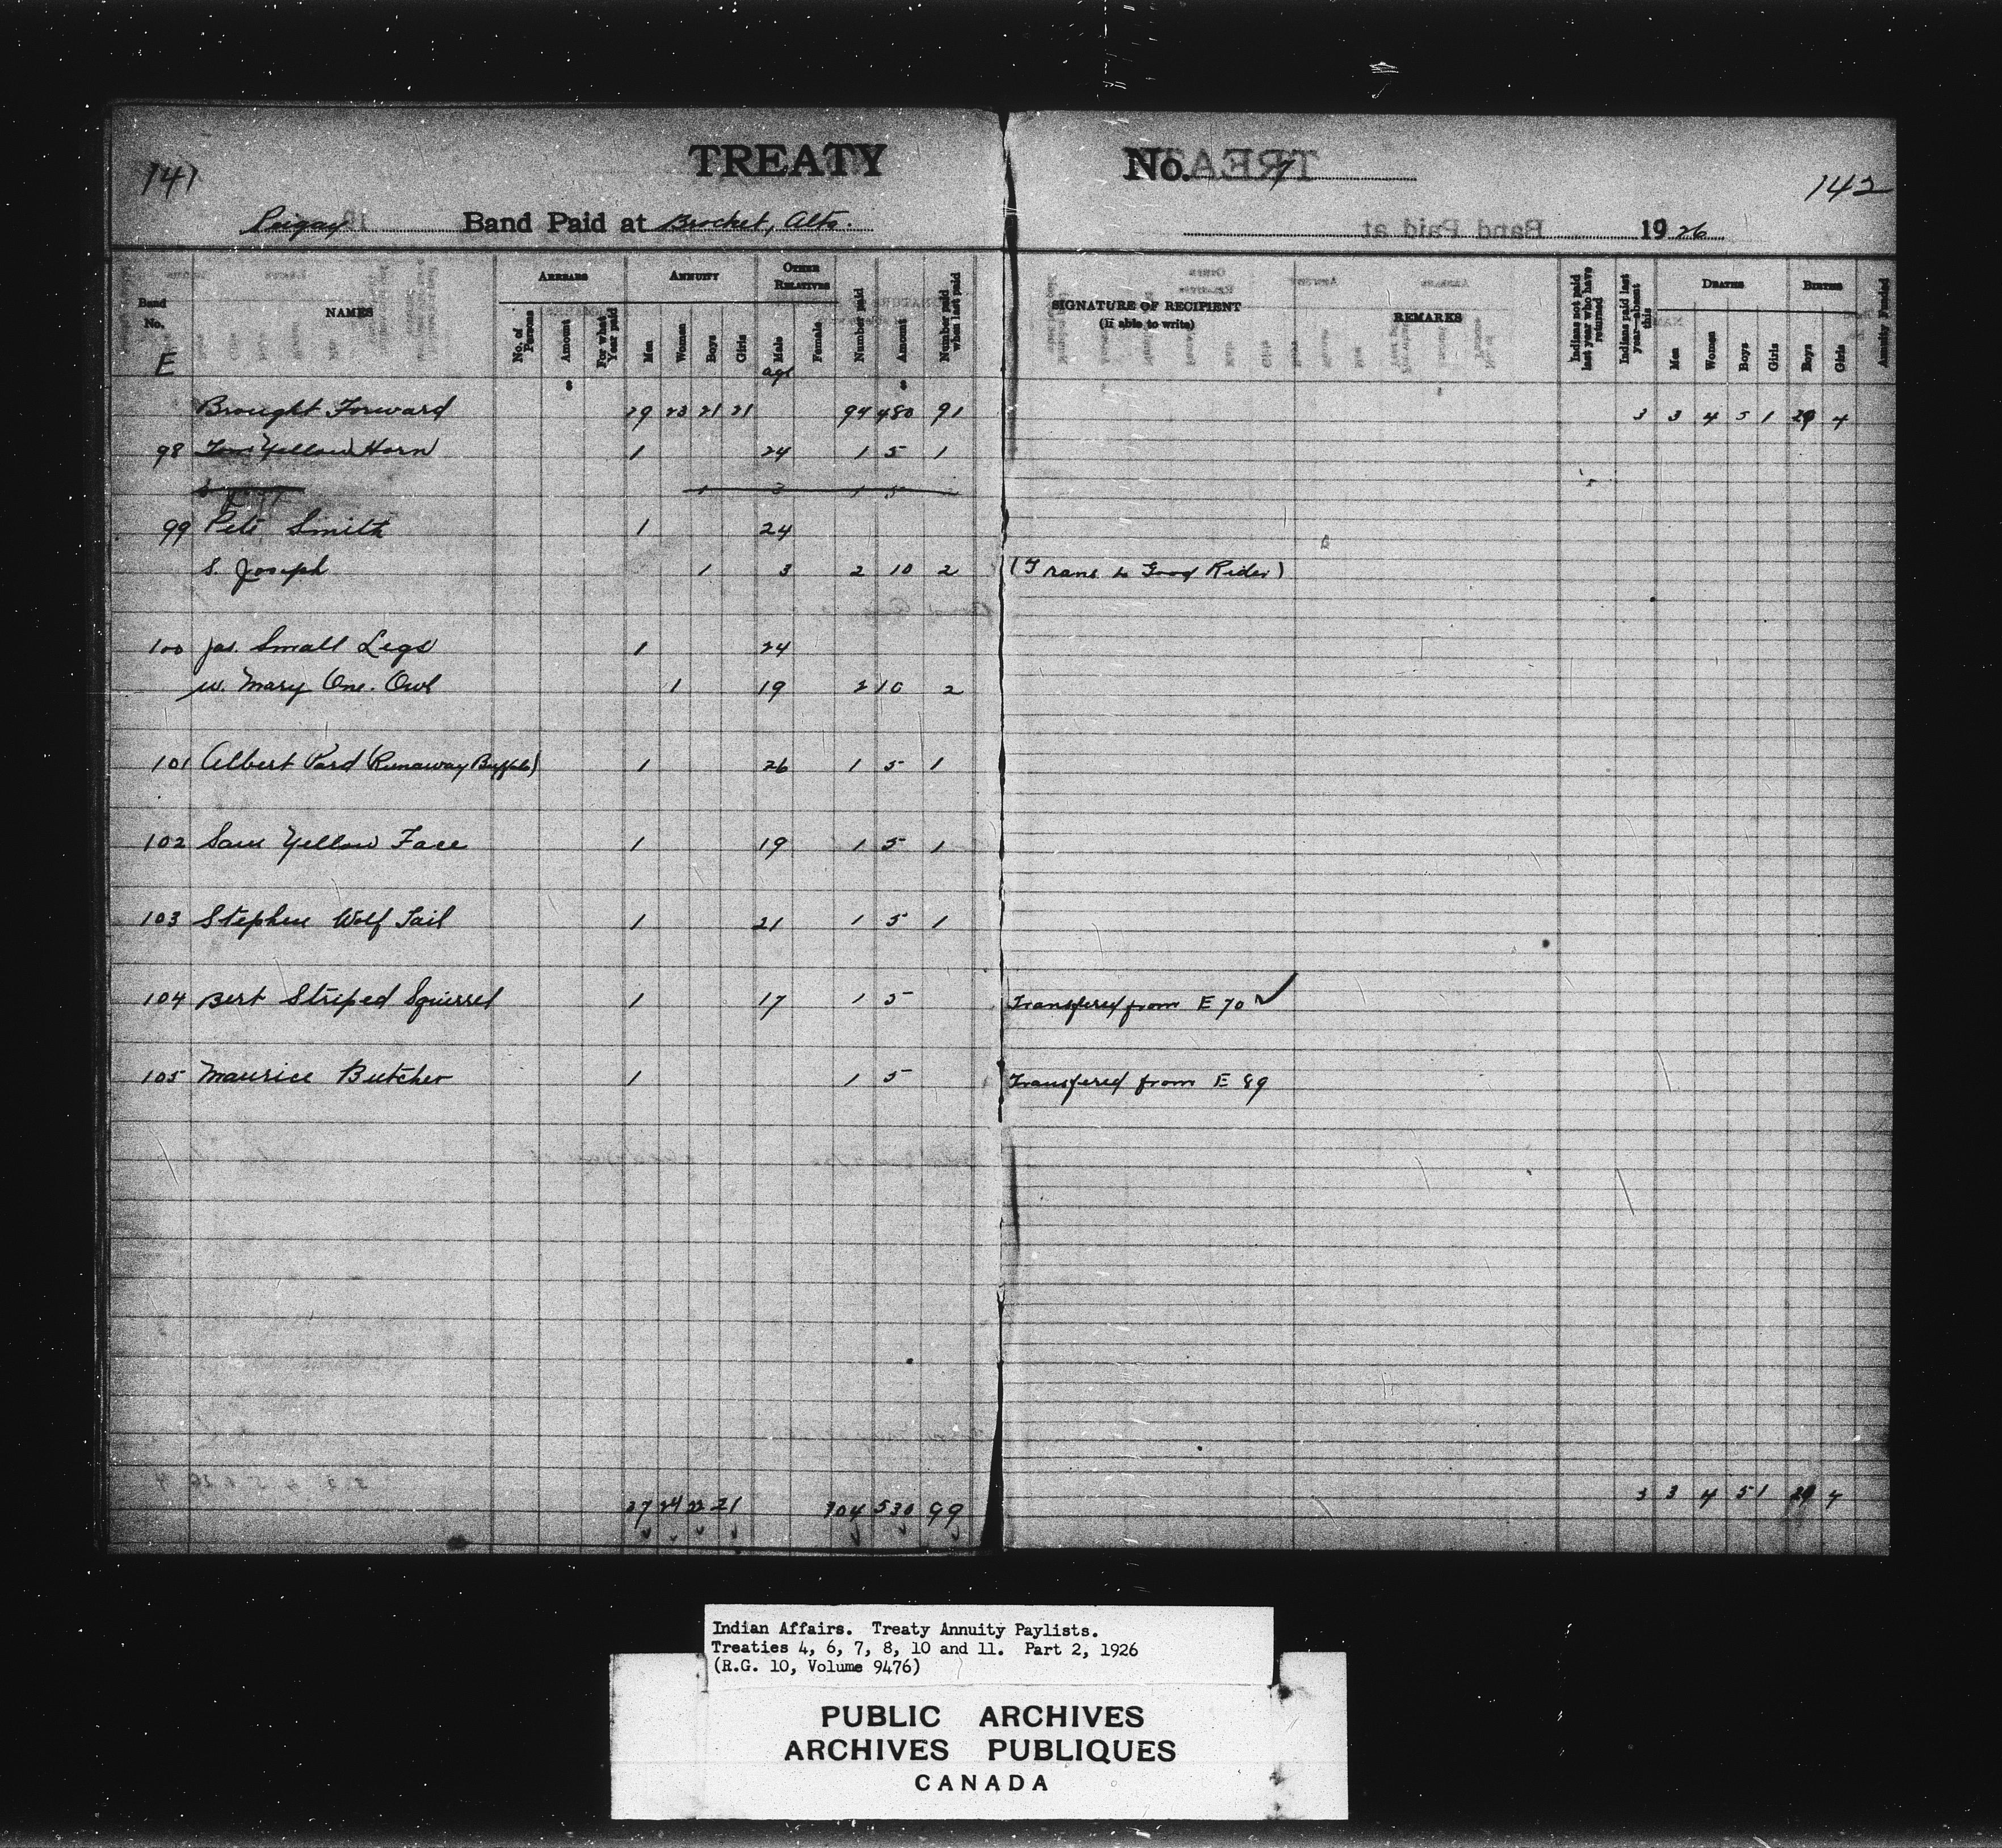 TREATY No. 7
141
142
Peigan Band Paid at Brocket, Alta. 1926
Band No. NAMES ARREARS ANNUITY OTHER RELATIVES Number paid Amount Number paid when last paid SIGNATURE OF RECIPIENT (If able to write) REMARKS Indians not paid last year who have returned Indians paid last year—absent this DEATHS BIRTHS Annuity Funded
No. of Persons Amount For what Year paid Men Women Boys Girls Male Female Men Women Boys Girls Boys Girls
E age
Brought Forward 23 21 21 94 480 91 3 3 4 5 1 4
98 Tom Yellow Horn 1 24 1 5 1
1 3 1 5
99 Pete Smith 1 24
S. Joseph 1 3 2 10 2 (Trans to Good Rider)
100 Jas. Small Legs 1 24
w. Mary One Owl 1 19 2 10 2
101 Albert Pard (Runaway Buffalo) 1 26 1 5 1
102 Sam Yellow Face 1 19 1 5 1
103 Stephen Wolf Tail 1 21 1 5 1
104 Bert Striped Squirrel 1 17 1 5 Transfered from E 70 ✓
105 Maurice Butcher 1 1 5 Transfered from E 89
37 24 22 21 104 530 99 3 3 4 5 1 4
Indian Affairs. Treaty Annuity Paylists.
Treaties 4, 6, 7, 8, 10 and 11. Part 2, 1926
(R.G. 10, Volume 9476)
PUBLIC ARCHIVES
ARCHIVES PUBLIQUES
CANADA